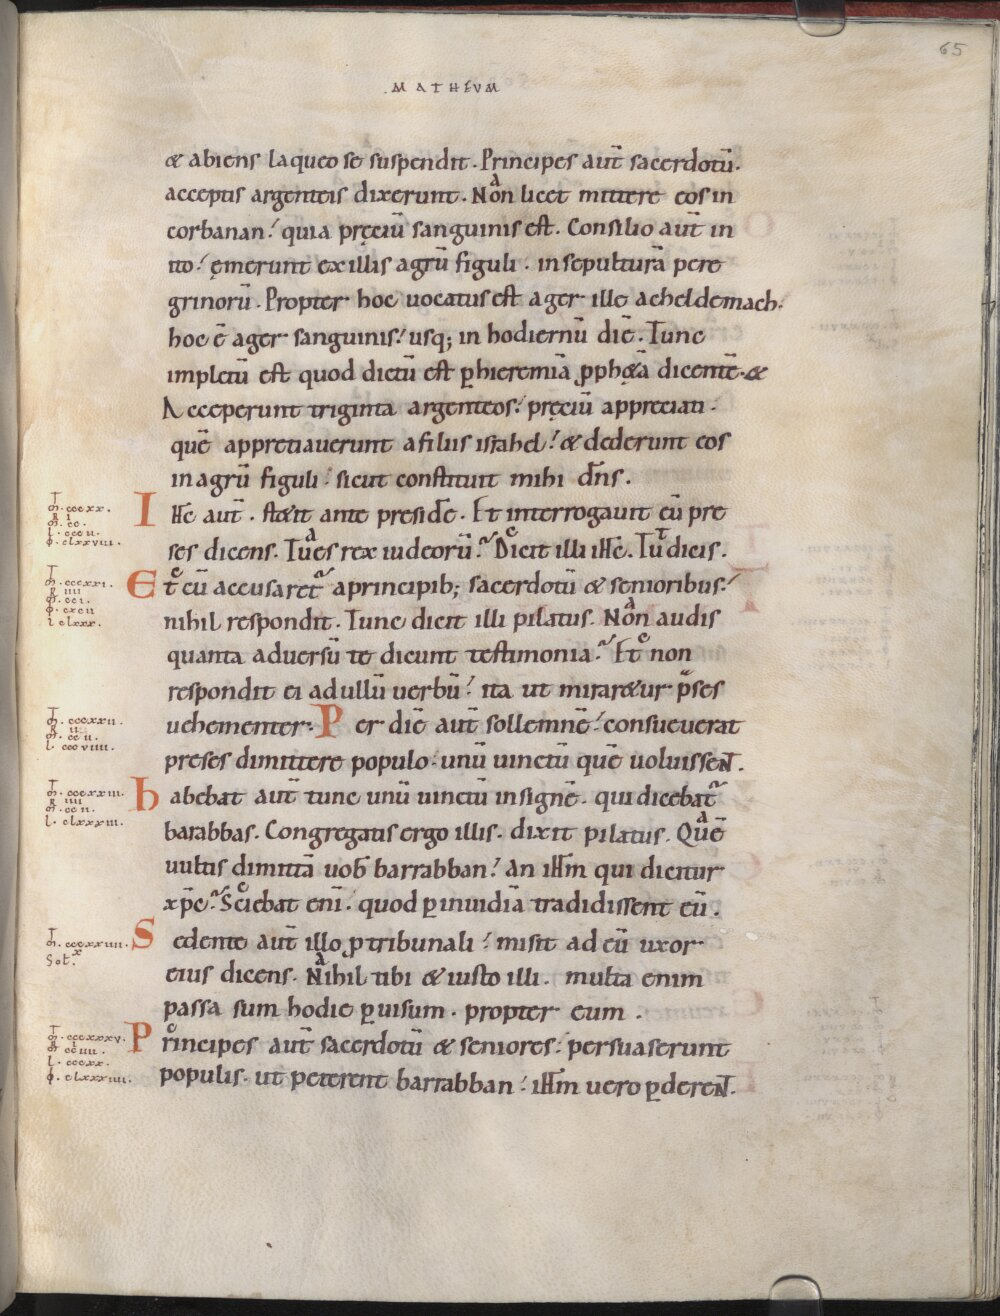 65
.MATHEUM
& abiens laqueo se suspendit. Principes aut̄ sacerdotū.
acceptis argenteis dixerunt. Non licet mittere eos in
corbanan: quia pręciū sanguinis est. Consilio aut̄ in
ito: ęmerunt ex illis agrū figuli. in sepulturā pere
grinorū. Propter hoc uocatus est ager ille acheldemach.
hoc ē ager sanguinis: usq; in hodiernū diē. Tunc
impletū est quod dictū est ꝑ hieremiā ꝓph&ā dicentē. &
Acceperunt triginta argenteos: pręciū appreciati.
quē appretiauerunt a filiis israhel: & dederunt eos
in agrū figuli: sicut constituit mihi dn̄s.
IHC aut̄. st&it ante presidē. Et interrogauit eū pre
ses dicens. Tu es rex iudeorū? Dicit illi ih̄c. Tu dicis.
Et cū accusaret᷑ a principib; sacerdotū & senioribus:
nihil respondit. Tunc dicit illi pilatus. Non audis
quanta aduersū te dicunt testimonia? Et non
respondit ei ad ullū uerbū: ita ut mirar&ur p̄ses
uehementer. Per diē aut̄ sollemnē: consueuerat
preses dimittere populo. unū uinctū quē uoluissent.
habebat aut̄ tunc unū uinctū insignē. qui dicebat᷑
barabbas. Congregatis ergo illis. dixit pilatus. Quē
uultis dimittā uob̄ barrabban? an ih̄m qui dicitur
xp̄c? Sciebat eni̅. quod ꝑ inuidiā tradidissent eū.
Sedente aut̄ illo ꝓ tribunali: misit ad eū uxor
eius dicens. Nihil tibi & iusto illi. multa enim
passa sum hodie ꝑ uisum. propter eum.
Principes aut̄ sacerdotū & seniores: persuaserunt
populis. ut peterent barrabban: ih̄m uero ꝑderent.